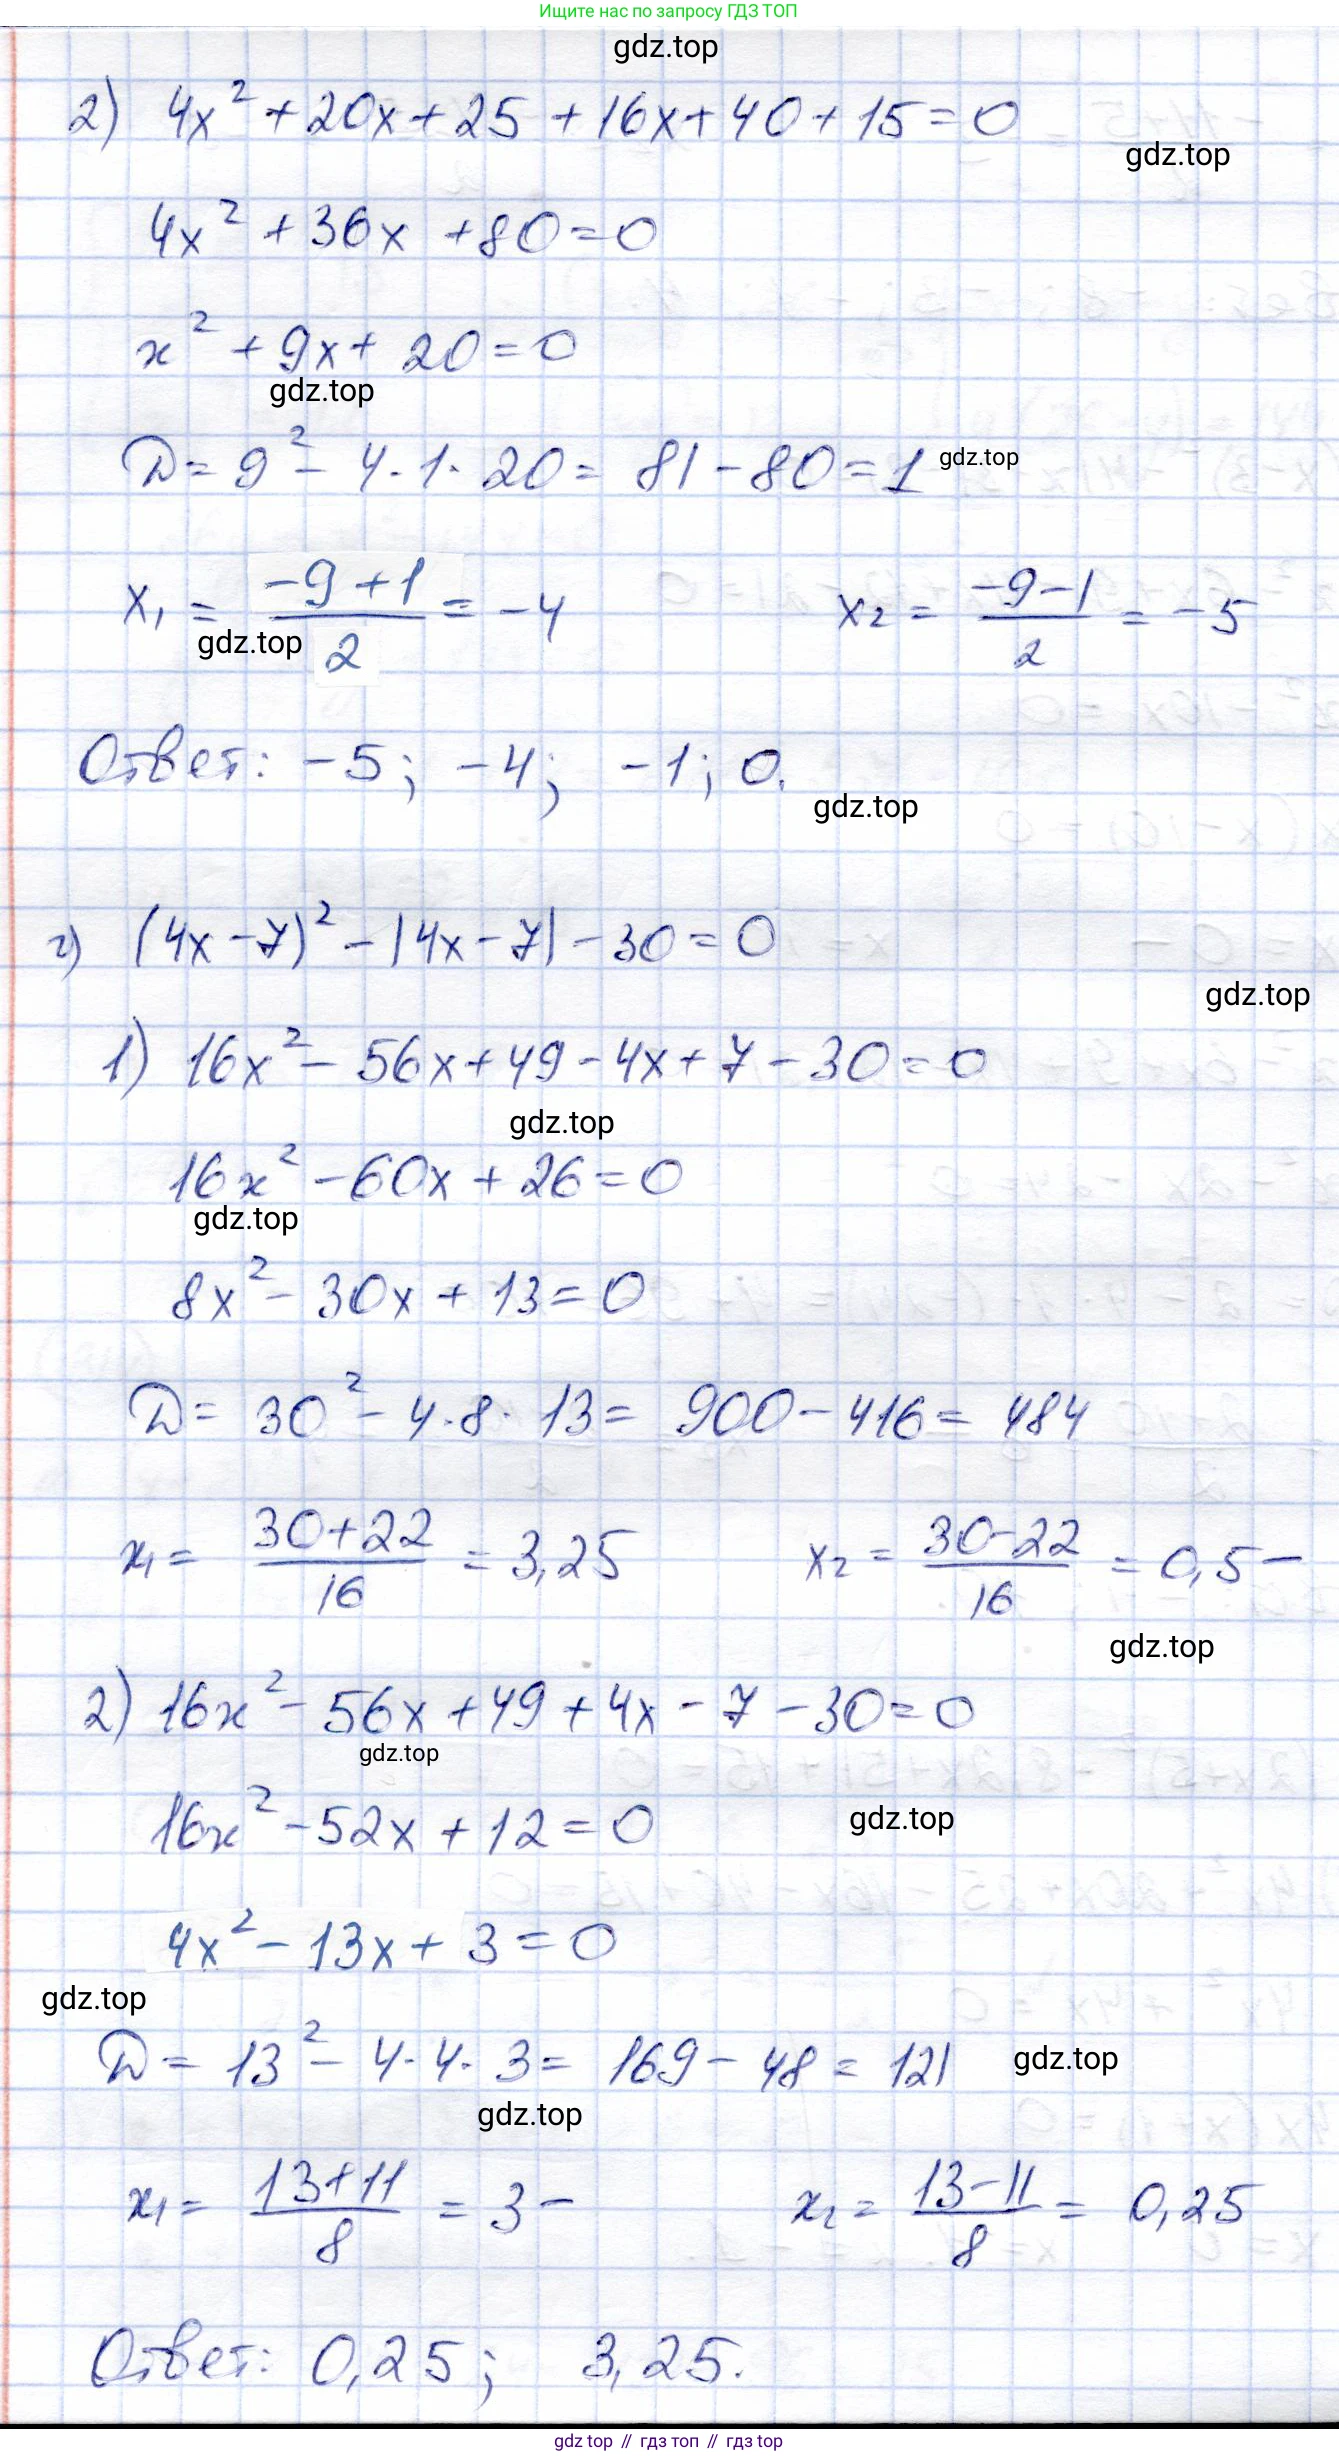 Ищите нас по запросу ГДЗ ТОП
gdz.top
2) 4x² + 20x + 25 + 16x + 40 + 15 = 0
gdz.top
4x² + 36x + 80 = 0
x² + 9x + 20 = 0
gdz.top
D = 9² - 4·1·20 = 81 - 80 = 1 gdz.top
x₁ = (-9+1)/2 = -4 x₂ = (-9-1)/2 = -5
gdz.top
Ответ: -5; -4; -1; 0.
gdz.top
г) (4x - 7)² - |4x - 7| - 30 = 0
gdz.top
1) 16x² - 56x + 49 - 4x + 7 - 30 = 0
gdz.top
16x² - 60x + 26 = 0
gdz.top
8x² - 30x + 13 = 0
D = 30² - 4·8·13 = 900 - 416 = 484
x₁ = (30+22)/16 = 3,25 x₂ = (30-22)/16 = 0,5 -
gdz.top
2) 16x² - 56x + 49 + 4x - 7 - 30 = 0
gdz.top
16x² - 52x + 12 = 0
gdz.top
4x² - 13x + 3 = 0
gdz.top
D = 13² - 4·4·3 = 169 - 48 = 121
gdz.top
gdz.top
x₁ = (13+11)/8 = 3 - x₂ = (13-11)/8 = 0,25
Ответ: 0,25; 3,25.
gdz top // гдз топ // gdz top